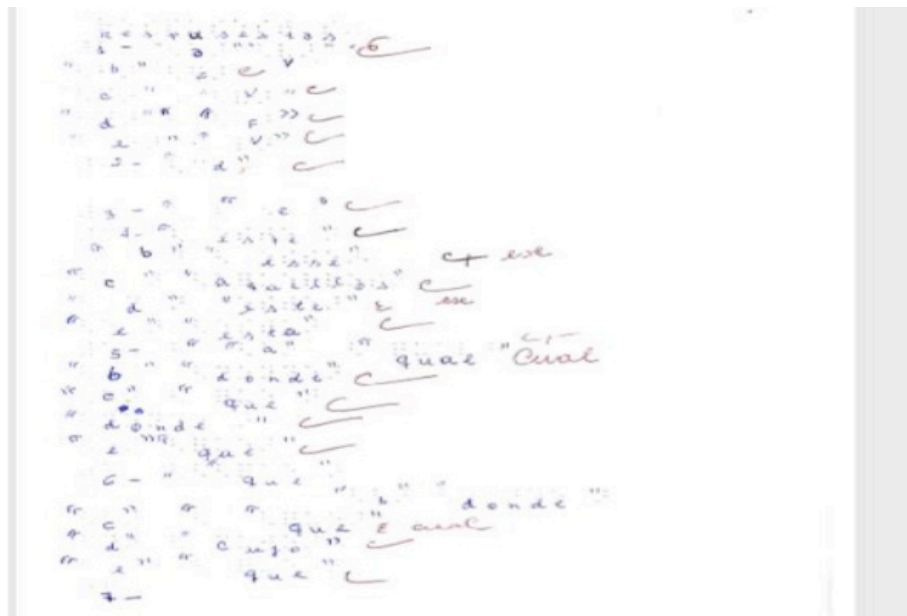 Respuestas
1- "a" 6
"b" c V
"c" "V" c
"d" "F" c
"e" "V" c
2- "d" c
3- "c" c
4- "este" c
"b" "esse" c+ ese
"c" "aquellos" c
"d" "este" E ese
"e" "esta" c
5- "a" "qual" Cual
"b" "donde" c
"c" "que" c
"donde" c
"e" "que" c
6- "que"
"b" "donde"
"c" "que" E cual
"d" "cujo" c
"e" "que" c
7-